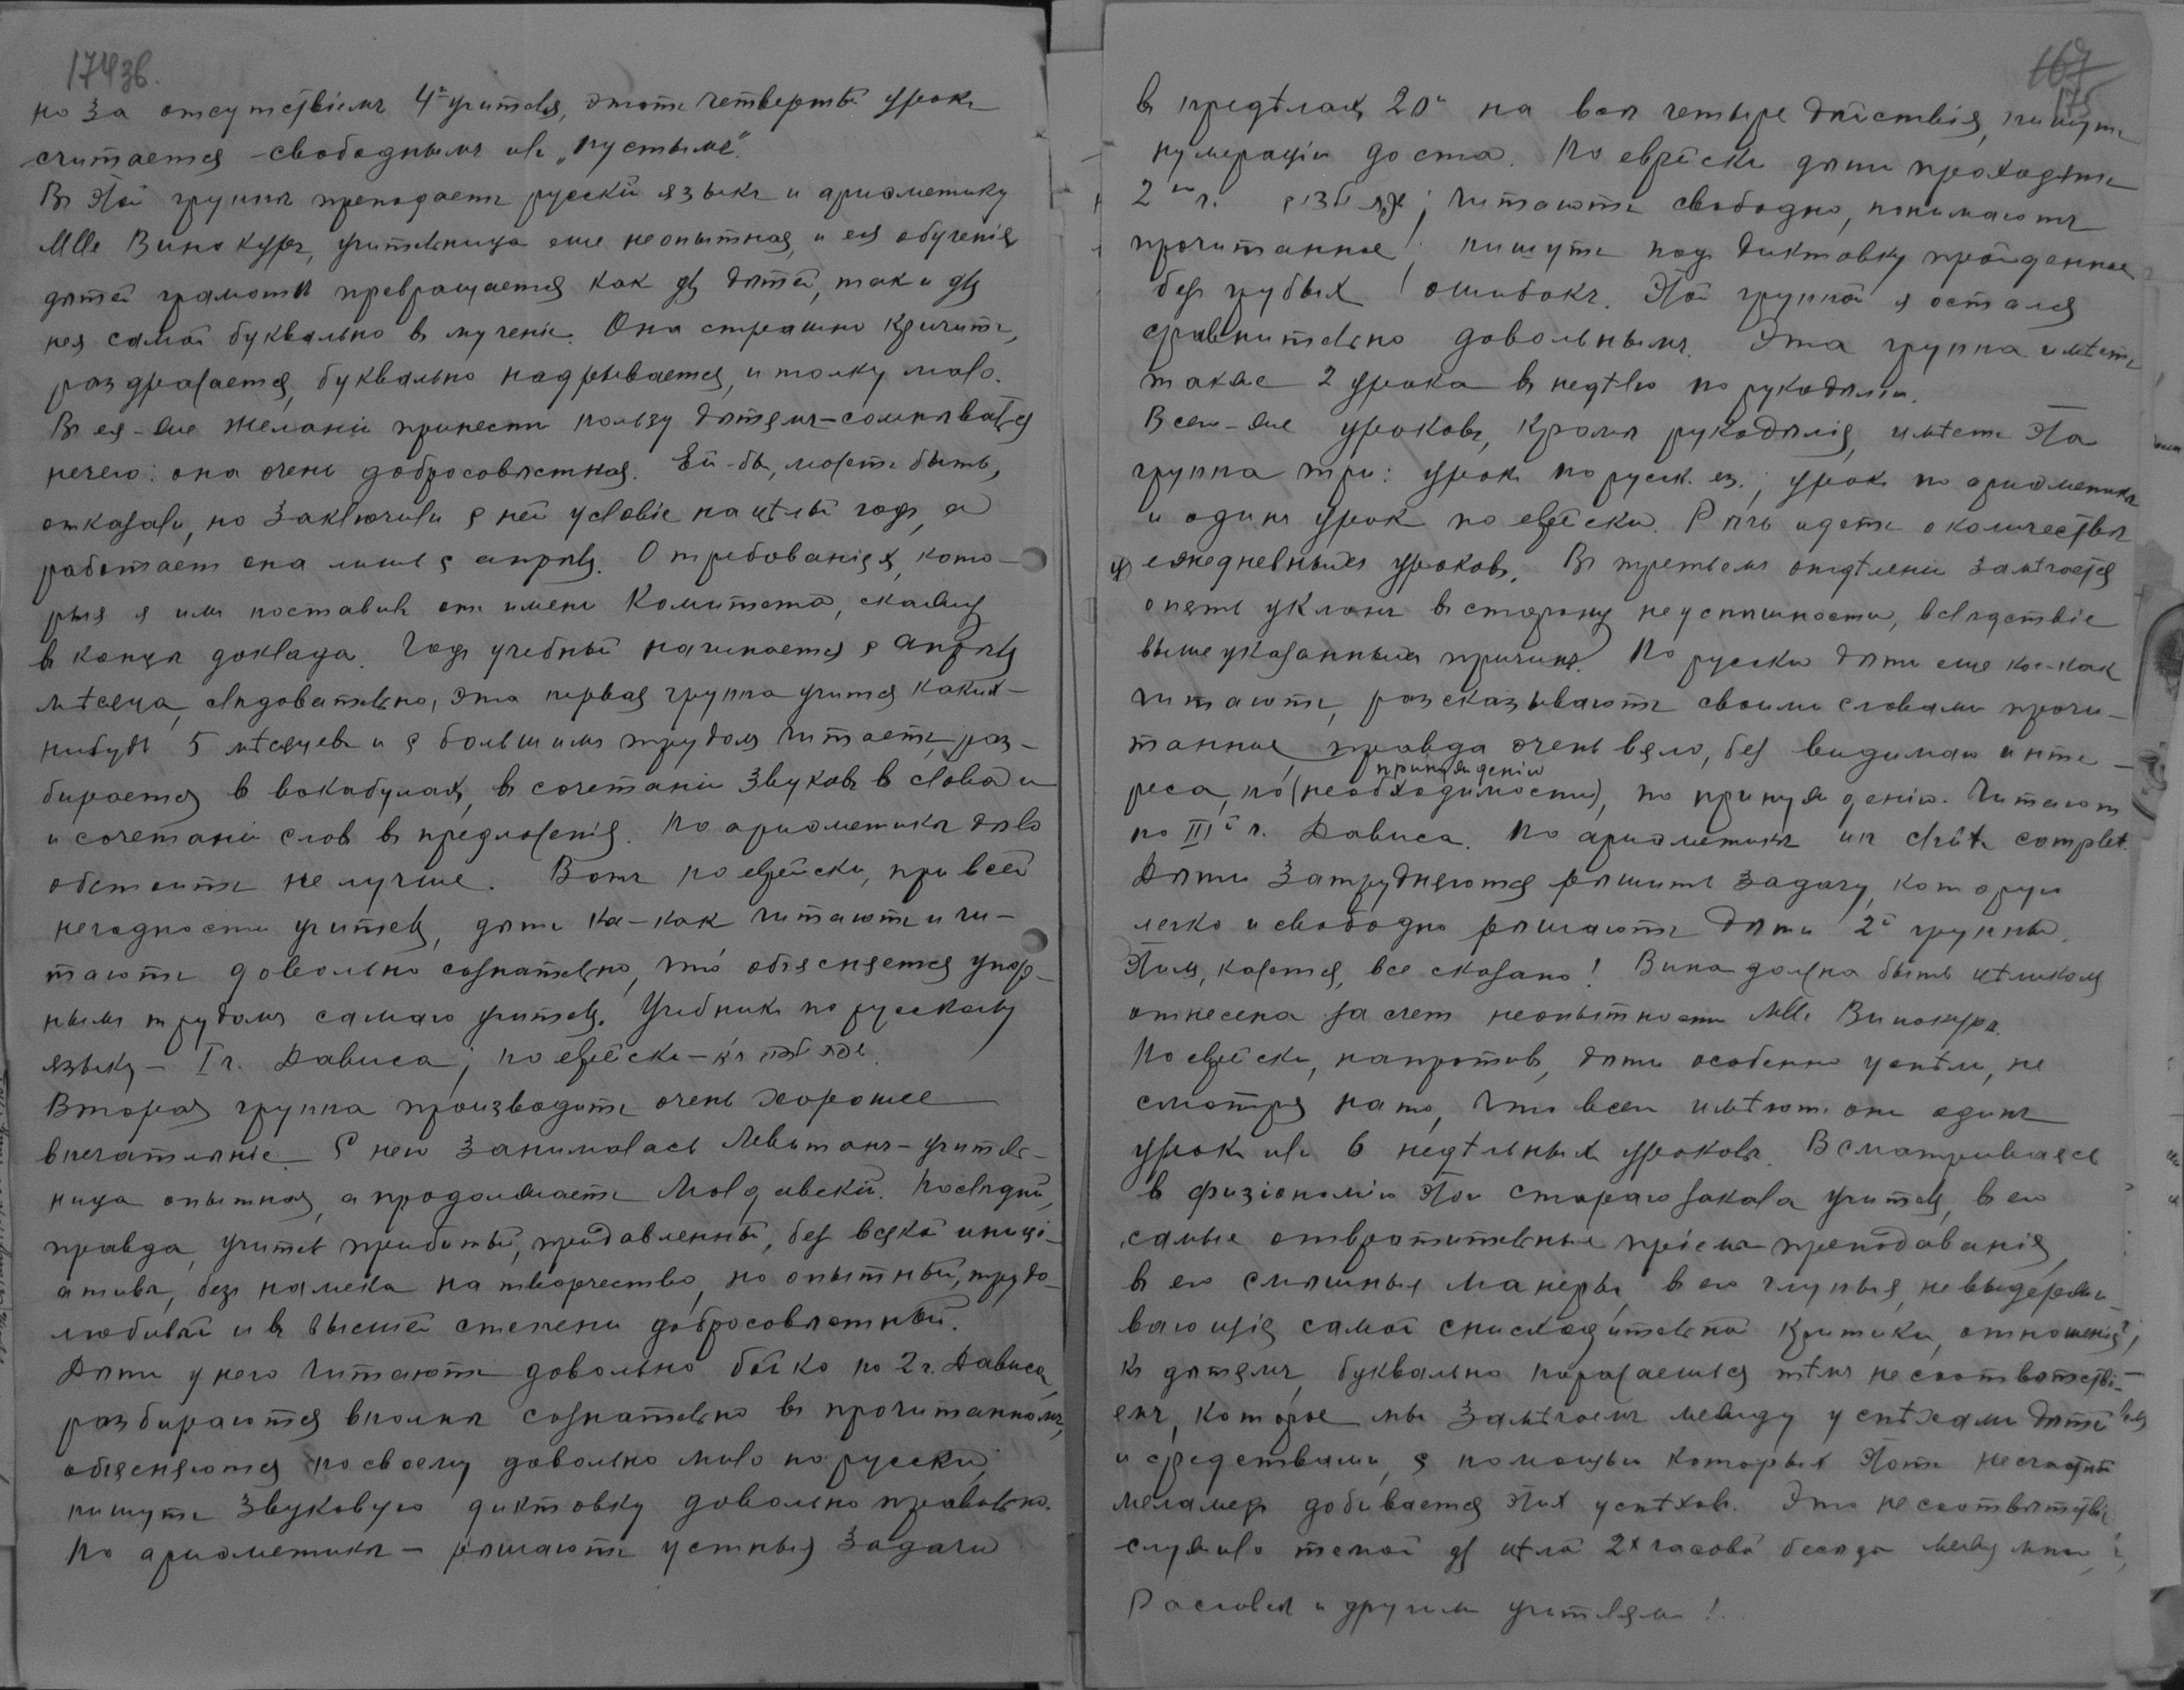 174 об.
но за отсутствіемъ 4го учителя, этотъ четвертый урокъ
считается свободнымъ или „пустымъ“.
Въ этой группѣ преподаетъ русскій языкъ и ариѳметику
Mlle Винокуръ, учительница еще неопытная, и ея обученія
дѣтей грамотѣ превращается как для дѣтей, так и для
нея самой буквально въ мученіе. Она страшно кричитъ,
раздражается, буквально надрывается, и толку мало.
Въ ея-же желаніи принести пользу дѣтямъ-сомнѣваться
нечего: она очень добросовѣстная. Ей-бы, можетъ быть,
отказали, но заключили с ней условіе на цѣлый годъ, а
работает она лишь с апрѣля. О требованіях, кото-
рыя я имъ поставилъ отъ имени Комитета, скажу
в концѣ доклада. Годъ учебный начинается с апрѣля
мѣсяца, слѣдовательно, эта первая группа учится каких-
нибудь 5 мѣсяцевъ и с большимъ трудомъ читаетъ, раз-
бирается в вокабулах, въ сочетаніи звуковъ в слова и
и сочетаніи слов въ предложенія. По ариѳметикѣ дѣло
обстоитъ не лучше. Вотъ по еврейски, при всей
негодности учителя, дѣти кое-как читаютъ и чи-
таютъ довольно сознательно, что объясняется упор-
нымъ трудомъ самаго учителя. Учебникъ по русскому
языку - I ч. Дависа; по еврейски -
Вторая группа производитъ очень хорошее
впечатлѣніе. С нею занималась Левитанъ-учитель-
ница опытная, а продолжаетъ Молдавскій. Послѣдній,
правда, учитель прибитый, придавленный, без всякой иниці-
ативы, безъ намека на творчество, но опытный, трудо-
любивый и въ высшей степени добросовѣстный.
Дѣти у него читаютъ довольно бойко по 2 ч. Дависа,
разбираются вполнѣ сознательно въ прочитанномъ,
объясняются по своему довольно мило по русски,
пишутъ звуковую диктовку довольно правильно.
По ариѳметикѣ - рѣшаютъ устныя задачи
167
175
в предѣлах 20и на всѣ четыре дѣйствія, пишутъ
нумерацію до ста. По еврейски дѣти проходятъ
2ую ч. ; читаютъ свободно, понимаютъ
прочитанное! пишутъ под диктовку пройденное
без грубых ошибокъ. Этой группой я остался
сравнительно довольнымъ. Эта группа имѣетъ
также 2 урока въ недѣлю по рукодѣлію.
Всего-же уроковъ, кромѣ рукодѣлія, имѣетъ эта
группа три: урокъ по русск. яз.; урокъ по ариѳметикѣ
и одинъ урок по еврейски. Рѣчь идетъ о количествѣ
ежедневныхъ уроковъ. Въ третьемъ отдѣленіи замѣчается
опять уклонъ въ сторону неуспѣшности, вслѣдствіе
вышеуказанныхъ причинъ. По русски дѣти еще кое-как
читаютъ, разсказываютъ своими словами прочи-
танное, правда очень вяло, без видимаго инте-
принужденію
реса, по (необходимости), по принужденію. Читают
по IIIй ч. Дависа. По ариѳметикѣ un chûte complet.
Дѣти затрудняются рѣшить задачу, которую
легко и свободно рѣшаютъ дѣти 2й группы.
Этимъ, кажется, все сказано! Вина должна быть цѣликом
отнесена за счет неопытности Mlle Винокуръ.
По еврейски, напротивъ, дѣти особенно успѣли, не
смотря на то, что всего имѣютъ они одинъ
урокъ или 6 недѣльных уроковъ. Всматриваясь
в физіономію этого стараго закала учителя, в его
самые отвратительные пріемы преподаванія,
в его смѣшныя манеры, в его глупыя, не выдержи-
вающія самой снисходительной критики, отношенія
къ дѣтямъ, буквально поражаешься тѣмъ несоотвѣтстві-
емъ, которое мы замѣчаемъ между успѣхами дѣтей
и средствами, с помощью которых этотъ несчастный
меламедъ добивается этих успѣховъ. Это несоотвѣтствіе
служило темой для цѣлой 2х часовой бесѣды между мною,
Расловым и другими учителями!